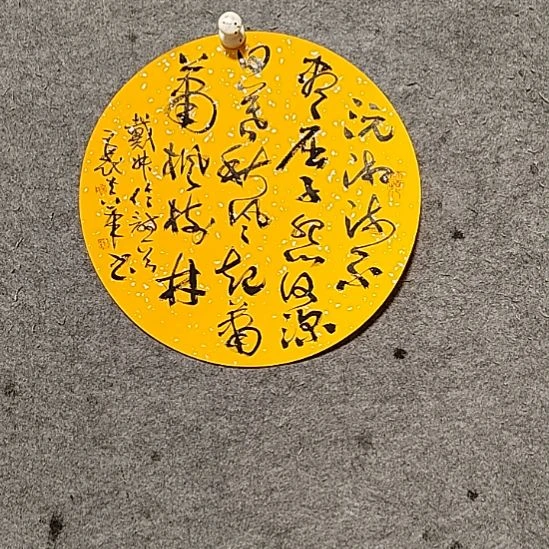 沅湘流不
尽屈子怨何深
日暮秋风起萧
萧枫树林
戴叔伦诗一首
书